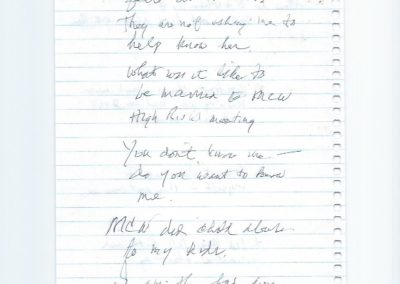 They are not asking me to
help know her.
What was it like to
be married to MCW
High Risk meeting
You don't know me —
do you want to know
me.
MCW did child abuse
to my kids.